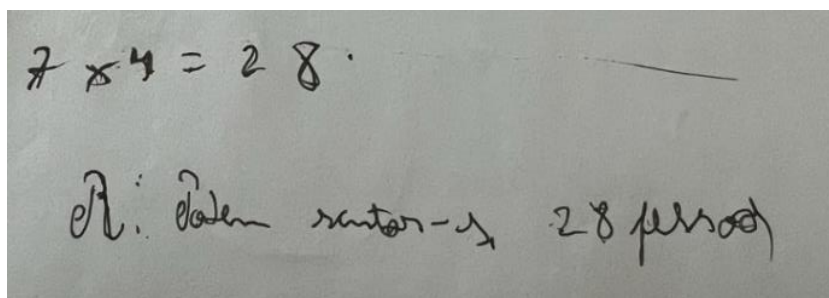 7 x 4 = 28.
R: Podem sentar-se 28 pessoas